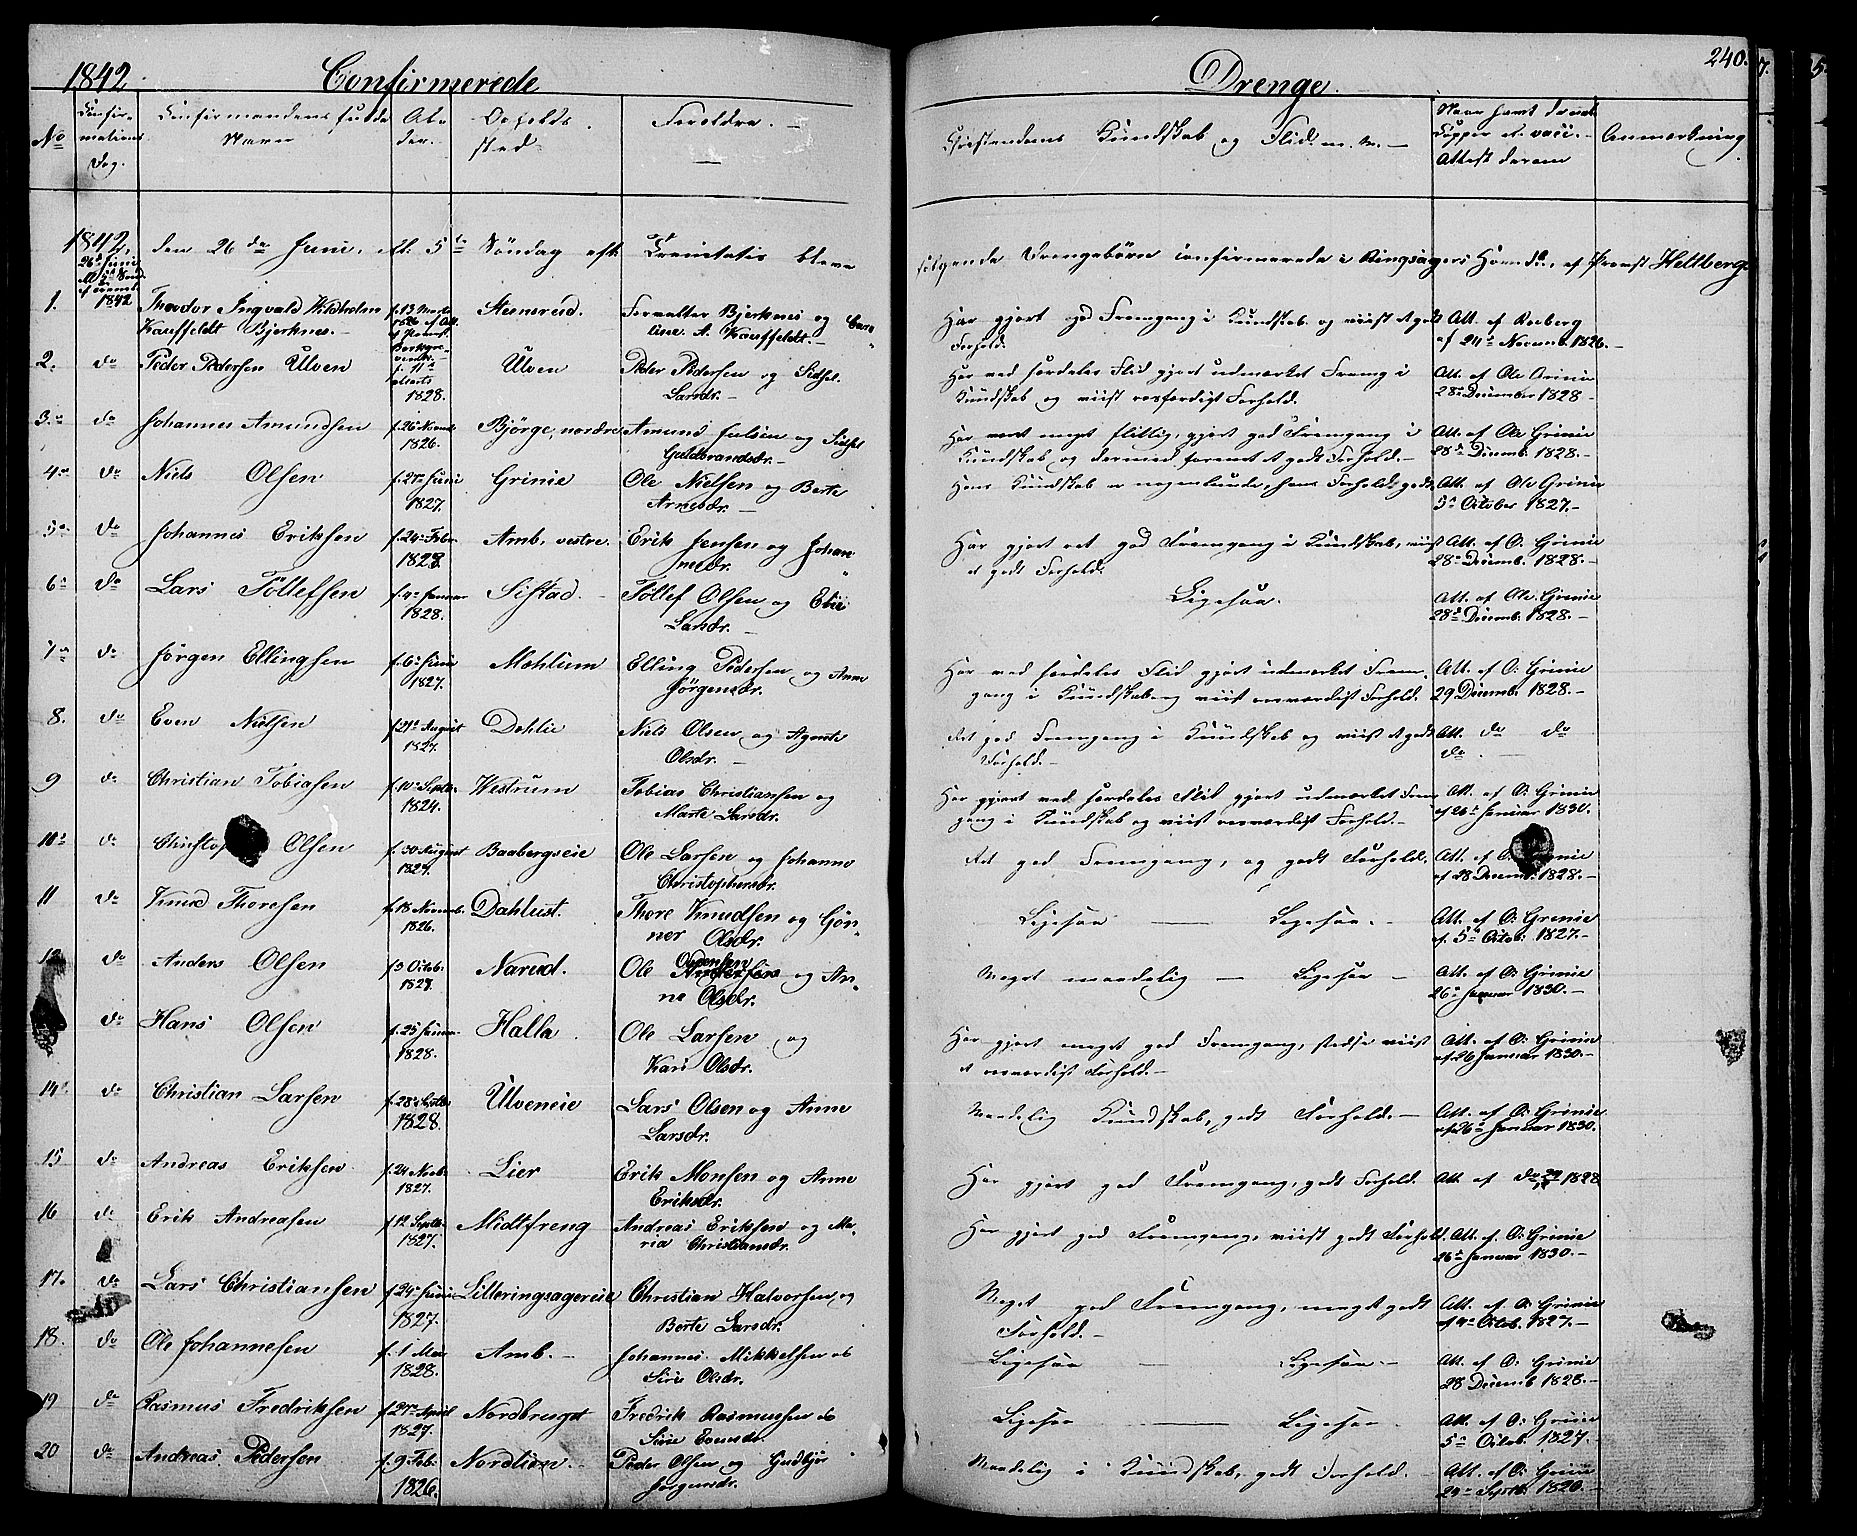 1842. Confirmerede Drenge. 240.
No Confirmations Dag. Confirmandens fulde Navn Alder. Opholdssted. Forældre. Christendoms Kundskab og Flid m. v. Naar havt de naturl. Kopper el. vacc. Attest derom Anmærkning
1842, den 26de Juni, Kl. 5te Søndag eft. Trinitatis bleve følgende Drengebørn confirmerede i Ringsagers Hovedk. af Provst Heltberg
1. 1842 Theodor Ingvald Wilhelm f. 13 Stensrud. Forvalter Bjerknes og Har gjort god Fremgang i Kundskab og viist et godt Att. af Roeberg
Kauffeldt Bjerknes. 1826 A. Kauffeldt. Forhold. af 24de Novemb. 1826.
2. do Peder Pedersen Ulven f. 11te Ulven Peder Pedersen og Sidsel Har med særdeles Flid gjort udmærket Fremg. i Att. af Ole Grinie
1828. Larsdr. Kundskab og viist Forhold. 28de December 1828
3. do Johannes Amundsen f. 26 Bjørge, nordre Amund Juliin og Sidsel Har været meget flittig, gjort god Fremgang i Att. af Ole Grinie
1826. Guldbrandsdr. Kundskab og dermed forenet et godt Forhold. 28de Decemb. 1828.
4. do Niels Olsen f. 27 Juni Grinie Ole Nielsen og Berte Hans Kundskab er nogenlunde, hans Forhold godt Att. af Ole Grinie
1827. Arnesdr. 5te October 1827.
5. do Johannes Eriksen f. 24 Febr. Amb, vestre. Erik Jensen og Johan- Har gjort ret god Fremgang i Kundskab, viist Att. af O. Grinie
1828. nesdr. et godt Forhold. 28de Decemb. 1828.
6. do Lars Tollefsen f. 4 Januar Sistad. Tollef Olsen og Eli Ligesaa. Att. af Ole Grinie
1828. Larsdr. 28de Decemb. 1828.
7. do Jørgen Ellingsen f. 6 Juni Mæhlum Elling Pedersen og Anne Har med særdeles Flid gjort udmærket Frem- Att. af O. Grinie
1827. Jørgensdr. gang i Kundskab og viist Forhold. 29 Decemb. 1828.
8. do Even Nielsen f. 21 August Dehlie Niels Olsen og Agnete Ret god Fremgang i Kundskab og viist et godt Att. do do
1827. Olsdr. Forhold. do.
9 do Christian Tobiasen f. 10 Septb. Westrum Tobias Christiansen og Har gjort med særdeles Flid gjort udmærket Frem- Att. af O. Grinie
1824. Marte Larsdr. gang i Kundskab og viist Forhold. af 26de Januar 1830.
10 do Christop Olsen f. 30 August Baabergseie Ole Larsen og Johanne Ret god Fremgang, og godt Forhold. Att. af O.
1827. Christophersdr. af 28 Decemb. 1828.
11 do Knud Thoresen f. 18 Novemb. Dahlust. Thore Knudsen og Gøn- Ligesaa Ligesaa. Att. af O. Grinie
1826. ner Olsdr. af 5te Octob. 1827.
12 do Anders Olsen f. 3 Octob. Narud. Ole og An- Meget maadelig Ligesaa Att. af O. Grinie
1827. ne Olsdr. 26de Januar 1830.
do Hans Olsen f. 25 Halla Ole Larsen og Har gjort meget god Fremgang, stedse viist Att. af O. Grinie
1828. Kari Olsdr. et Forhold. af 26 Januar 1830.
14 do Christian Larsen f. 28 Septb. Ulveneie Lars Olsen og Anne Maadelig Kundskab, godt Forhold. Att. af O. Grinie
1828. Larsdr. af 26de Januar 1830.
15 do Andreas Eriksen f. 24 Novb. Lier Erik Monsen og Anne Har gjort god Fremgang, godt Forhold Att. af do 1828
1827. Eriksdr.
16 do Erik Andreasen f. 12 Septb. Midtfreng Andreas Eriksen og Ma- Har gjort god Fremgang, viist godt Forhold. Att. af O. Grinie
1827. ria Christiansdr. 26de Januar 1830.
17. do Lars Christiansen f. 24 Juni Litleringsagereie Christian Halvorsen og Meget god Fremgang, meget godt Att. af O. Grinie
1827. Berte Larsdr. Forhold. af 4 Octob. 1827.
18. do Ole Johannesen f. 1 Mai Amb. Johannes Mikkelsen og Ligesaa Ligesaa Att. af O. Grinie
1828. Siri Olsdr. 28 Decemb 1828.
19 do Rasmus Fredriksen f. 27 April Nordbruget Fredrik Rasmussen og Ligesaa Ligesaa Att. af O. Grinie
1827. Siri Evensdr. 5te Octob. 1827.
20 do Andreas Pedersen f. 9 Feb. Nordlien. Peder Olsen og Gudbjør Maadelig i Kundskab, godt Forhold. Att. af O. Grinie
1826. Jørgensdr. 29de Septb. 1826.